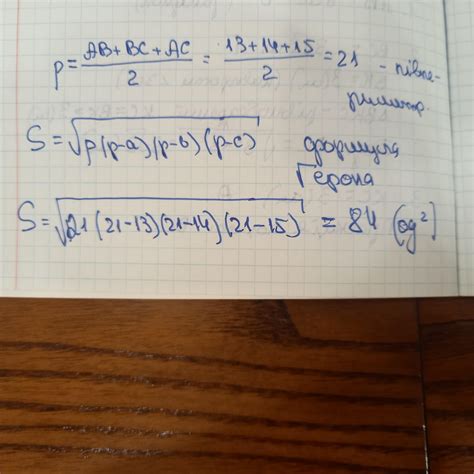 p = (AB+BC+AC)/2 = (13+14+15)/2 = 21 - півпе-
риметр.
S = √(p(p-a)(p-b)(p-c)) формула
Герона
S = √(21(21-13)(21-14)(21-15)) = 84 (од²)